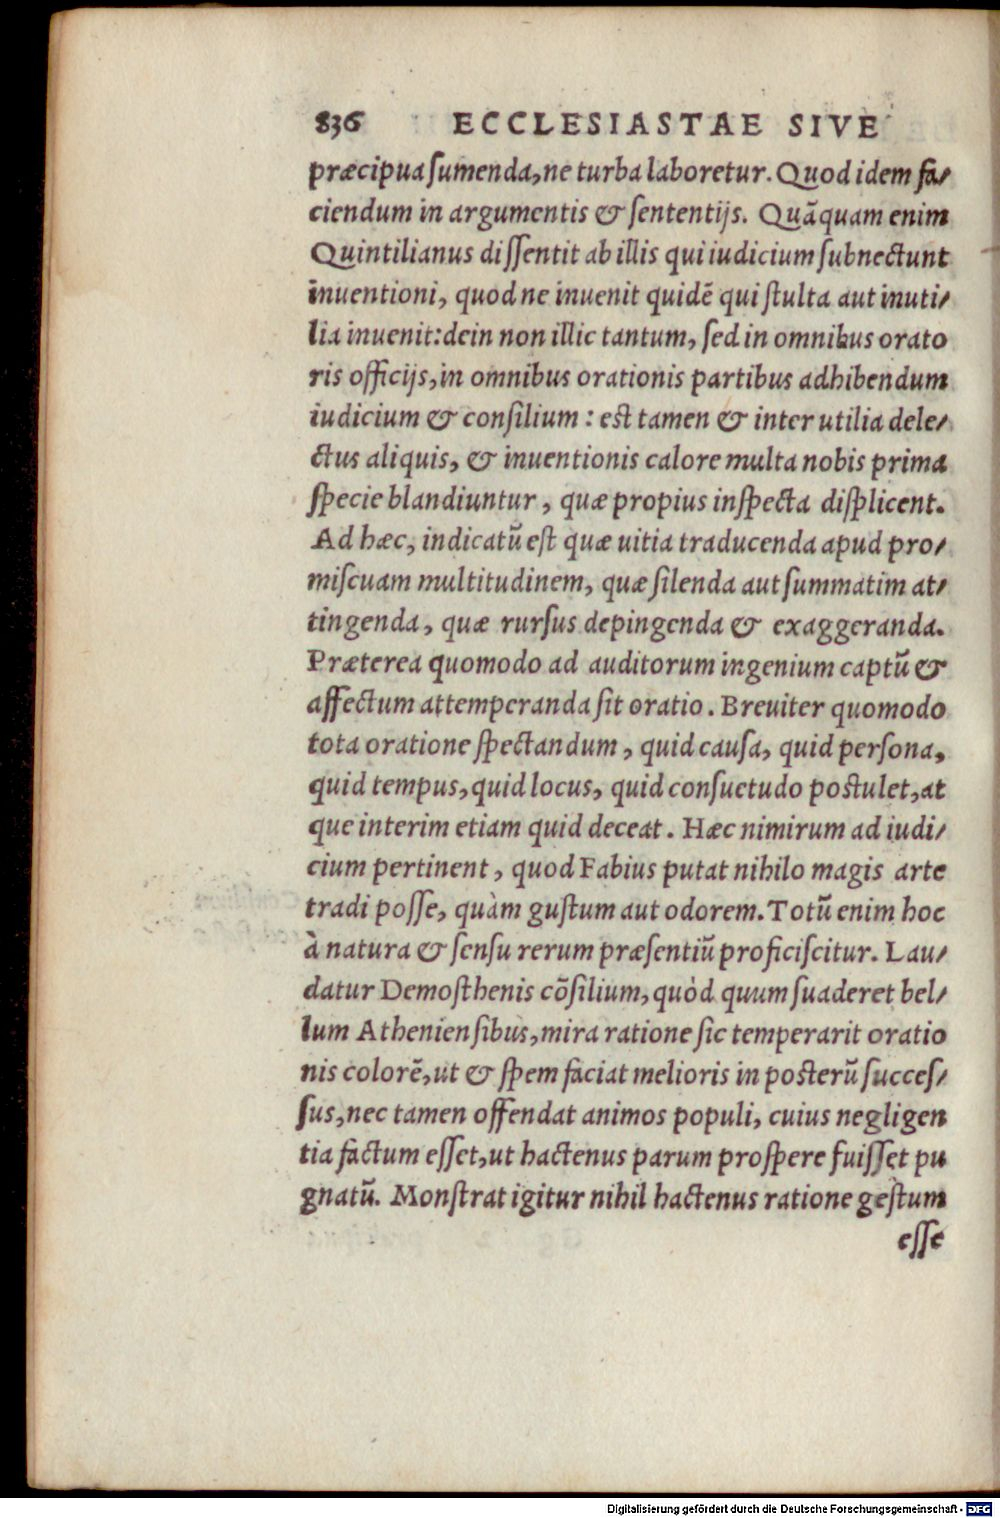 836 ECCLESIASTAE SIVE
præcipua sumenda, ne turba laboretur. Quod idem fa/
ciendum in argumentis & sententijs. Quãquam enim
Quintilianus dissentit ab illis qui iudicium subnectunt
inuentioni, quod ne inuenit quidẽ qui stulta aut inuti/
lia inuenit: dein non illic tantum, sed in omnibus orato
ris officijs, in omnibus orationis partibus adhibendum
iudicium & consilium : est tamen & inter utilia dele/
ctus aliquis, & inuentionis calore multa nobis prima
specie blandiuntur, quæ propius inspecta displicent.
Ad hæc, indicatũ est quæ uitia traducenda apud pro/
miscuam multitudinem, quæ silenda aut summatim at/
tingenda, quæ rursus depingenda & exaggeranda.
Præterea quomodo ad auditorum ingenium captũ &
affectum attemperanda sit oratio. Breuiter quomodo
tota oratione spectandum, quid causa, quid persona,
quid tempus, quid locus, quid consuetudo postulet, at
que interim etiam quid deceat. Hæc nimirum ad iudi/
cium pertinent, quod Fabius putat nihilo magis arte
tradi posse, quàm gustum aut odorem. Totũ enim hoc
à natura & sensu rerum præsentiũ proficiscitur. Lau/
datur Demosthenis cõsilium, quòd quum suaderet bel/
lum Atheniensibus, mira ratione sic temperarit oratio
nis colorẽ, ut & spem faciat melioris in posterũ succes/
sus, nec tamen offendat animos populi, cuius negligen
tia factum esset, ut hactenus parum prospere fuisset pu
gnatũ. Monstrat igitur nihil hactenus ratione gestum
esse
Digitalisierung gefördert durch die Deutsche Forschungsgemeinschaft - DFG